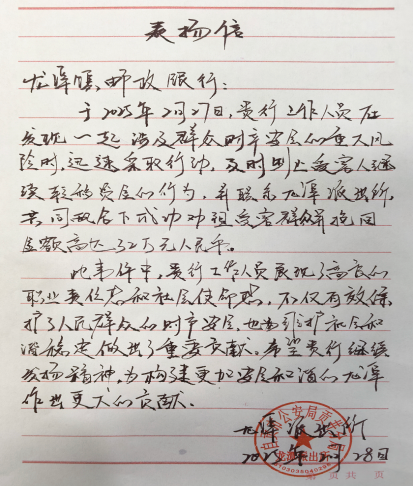 表扬信
龙潭镇邮政银行:
于2025年2月27日,贵行工作人员在
发现一起涉及群众财产安全的重大风
险时,迅速采取行动,及时制止受害人继
续转移资金的行为,并联系龙潭派出所,
共同配合下成功劝阻受害群众并挽回
金额高达32万元人民币。
此事件中,贵行工作人员展现了高度的
职业责任感和社会使命感,不仅有效保
护了人民群众的财产安全,也为维护社会和
谐稳定做出了重要贡献。希望贵行继续
发扬精神,为构建更加安全和谐的龙潭
作出更大的贡献。
龙潭派出所
2025年2月28日
公安局
派出所
第 页 共 页